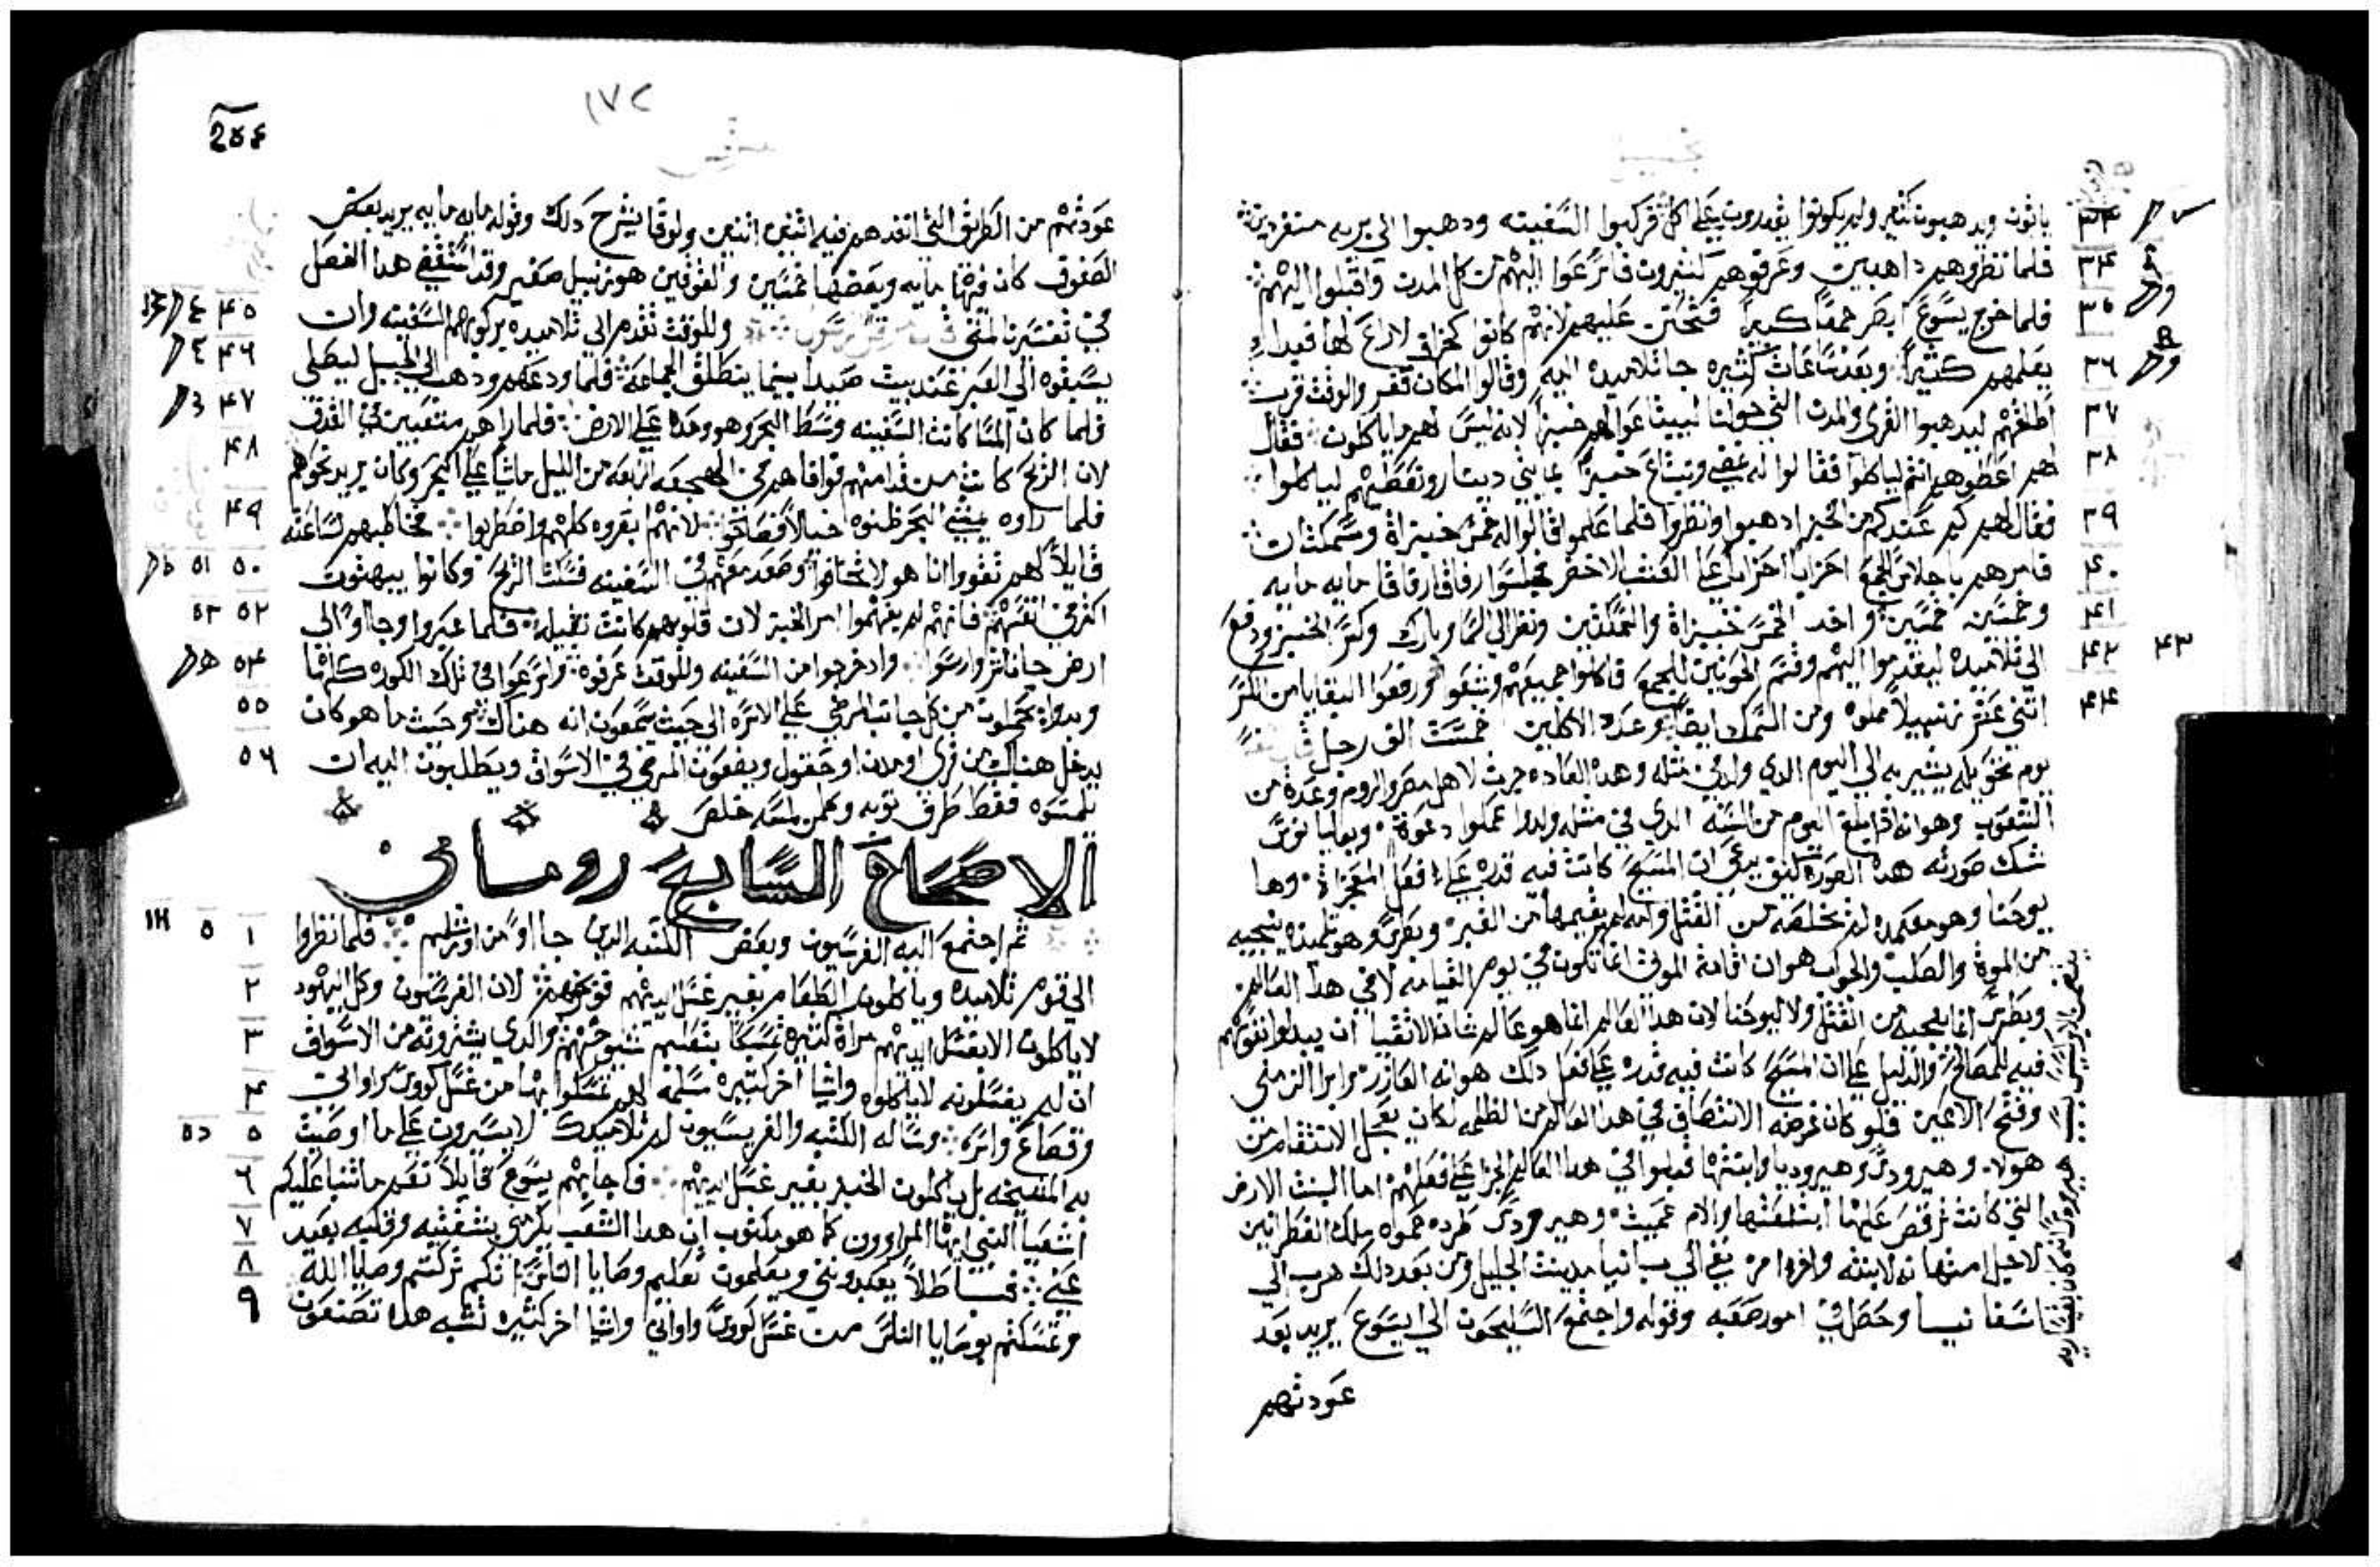 ياتون ويدهبون كثير ولم يكونوا يقدرون على اكل فركبوا السفينه ودهبوا الي بريه منفردين
فلما نظروهم داهبين وعرفوهم كثيرون فاسرعوا اليهم من كل المدن واقبلوا اليهم
فلما خرج يسوع ابصر جمعاً كبيراً فتحنن عليهم لانهم كانوا كخراف لا راع لها فبدا
يعلمهم كثيراً وبعد ساعات كثيره جا تلاميده اليه وقالوا المكان قفر والوقت قرب
اطلقهم ليدهبوا القرى والمدن التي حولنا ليبتاعوا لهم خبزاً لانه ليس لهم ما ياكلون فقال
لهم اعطوهم انتم لياكلوا فقالوا له نمضي ونبتاع خبزاً بمايتي دينار ونعطيهم لياكلوا
فقال لهم كم عندكم من الخبز ادهبوا وانظروا فلما علموا قالوا له خمس خبزاة وسمكتان
فامرهم باجلاس الجمع احزاباً احزاباً على العشب الاخضر فجلسوا رفاقا رفاقا مايه مايه
وخمسين خمسين واخد الخمس خبزاة والسمكتين ونظر الي السما وبارك وكسر الخبز ودفع
الي تلاميده ليقدموا اليهم وقسم الحوتين للجمع فاكلوا جميعهم وشبعوا ورفعوا البقايا من الكسر
اثني عشر زنبيلاً مملوه ومن السمك ايضاً وعدد الاكلين خمست الف رجل
يوم تحويله يشير به الي اليوم الدي ولد في مثله وهده العاده جرت لاهل مصر والروم وعدة من
الشعوب وهو انه اذا بلغ اليوم من السنه الدي في مثله ولدوا عملوا دعوة
شك صورته هده الصوره كيف يدعى ان المسيح كانت فيه قدره على فعل المعجزاة وها
يوحنا وهو معمده لم يخلصه من القتل ولم يقيمه من القبر وبطرس وهو تلميده ينجيه
من الموة والصلب والجواب هو ان اقامة الموتى انما تكون في يوم القيامه لا في هدا العالم
وبطرس انما نجيه من القتل ولا ليوحنا لان هدا العالم انما هو عالم شان الاتقيا ان يبدلوا نفوسهم
فيه للمصالح والدليل على ان المسيح كانت فيه قدره على فعل دلك هو انه العازر وابرا الزمنى
وفتح الاعين فلو كان غرضه الانتصاف في هدا العالم من الظلمه لكان يعجل الانتقام من
هولا وهيرودس وهيروديا وابنتها قبلوا في هدا العالم الجزا على فعلهم اما البنت الارض
التي كانت ترقص عليها ابتلعتها والام عميت وهيرودس طرده حموه ملك
لاجل امتهانه لابنته وافرد من نفي الي سبانيا مدينت الجليل ومن بعد دلك هرب الي
وحصل في امور صعبه وقوله واجتمع السليحون الي يسوع يريد بعد
عودتهم
٣٣
٣٤
٣٥
٣٦
٣٧
٣٨
٣٩
٤٠
٤١
٤٢ ٤٣
٤٤
١٧٢
254
عودتهم من الطريق التي انفدهم فيه اثنين اثنين ولوقا يشرح دلك وقوله مايه مايه يريد بعض
الصفوف كان فيها مايه وبعضها خمسين والقوفين هو زنبيل صغير وقد استقصى هدا الفصل
في تفسيرنا لمتى وللوقت تقدم الي تلاميده بركوبهم السفينه وان
يسبقوه الي العبر عند بيت صيدا بينما ينطلق الجماعة فلما ودعهم ودهب الي الجبل ليصلي
فلما كان المسا كانت السفينه وسط البحر وهو وحده على الارض فلما راهم متعبين في القدف
لان الريح كانت من قدامهم فوافاهم في الهجعه الرابعه من الليل ماشياً على البحر وكان يريد نحوهم
فلما راوه يمشي البحر ظنوه خيالاً فصاحوا لانهم ابصروه كلهم واضطربوا فخاطبهم لساعته
قايلاً لهم تقووا انا هو لا تخافوا وصعد معهم في السفينه فسكنت الريح وكانوا يبهتون
اكثر في انفسهم فانهم لم يفهموا امر الخبز لان قلوبهم كانت تقيله فلما عبروا وجاوا الي
ارض جاناشر وارسوا واد خرجوا من السفينه وللوقت عرفوه واسرعوا في تلك الكوره كلها
وبدوا يحملون من كل جانب المرضى على الاسره الي حيث يسمعون انه هناك وحيث ما هو كان
يدخل هناك من قرى او مدن او حقول ويضعون المرضى في الاسواق ويطلبون اليه ان
يلمسوه فقط طرف توبه وكلمن لمسه خلص
الاصحاح السابع روماني
ثم اجتمع اليه الفرسيون وبعض الكتبه الدين جااوا من اورشليم فلما نظروا
الي قوم تلاميده وياكلون الطعام بغير غسل ايديهم فوبخهم لان الفرسيون وكل اليهود
لا ياكلون الا بغسل ايديهم مراة كثيره تمسكاً بتعليم شيوخهم والدي يشترونه من الاسواق
ان لم يغسلونه لا ياكلوه واشيا اخر كثيره سلمه لهم تمسكوا بها من غسل كووس واواني
وقصاع واسره وساله الكتبه والفريسيون لم تلاميدك لا يسيرون على ما اوصيت
به المشيخه بل ياكلون الخبز بغير غسل ايديهم فاجابهم يسوع قايلاً نعم ما تنبا عليكم
اشعيا النبي ايها المراوون كما هو مكتوب ان هدا الشعب يكرمني بشفتيه وقلبه بعيد
عني فباطلاً يعبدونني ويعلمون تعليم وصايا الناس انكم تركتم وصايا الله
وتمسكتم بوصايا الناس من غسل كووس واواني واشيا اخر كثيره تشبه هدا تصنعون
٤٥
٤٦
٤٧
٤٨
٤٩
٥٠ ٥١
٥٢ ٥٣
٥٤
٥٥
٥٦
١
٢
٣
٤
٥
٦
٧
٨
٩